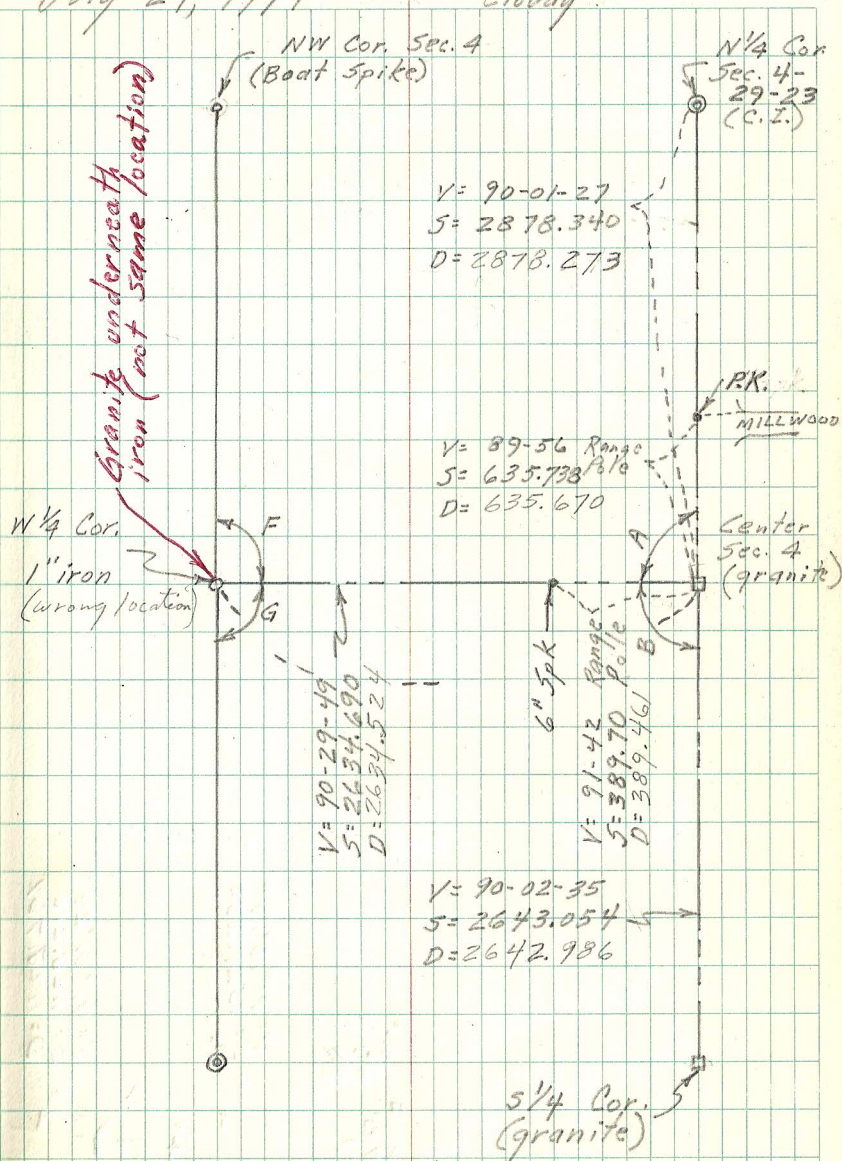 Cloudy
NW Cor. Sec. 4
(Boat Spike)
N 1/4 Cor.
Sec. 4-
29-23
(C.I.)
Granite underneath
iron (not same location)
V= 90-01-27
S= 2878.340
D= 2878.273
P.K.
MILLWOOD
V= 89-56 Range
S= 635.738 Pole
D= 635.670
W 1/4 Cor.
1" iron
(wrong location)
F
G
A
B
Center
Sec. 4
(granite)
6" Spk
V= 90-29-49
S= 2634.690
D= 2634.524
V= 91-42 Range
S= 389.70 Pole
D= 389.461
V= 90-02-35
S= 2643.054
D= 2642.986
S 1/4 Cor.
(granite)